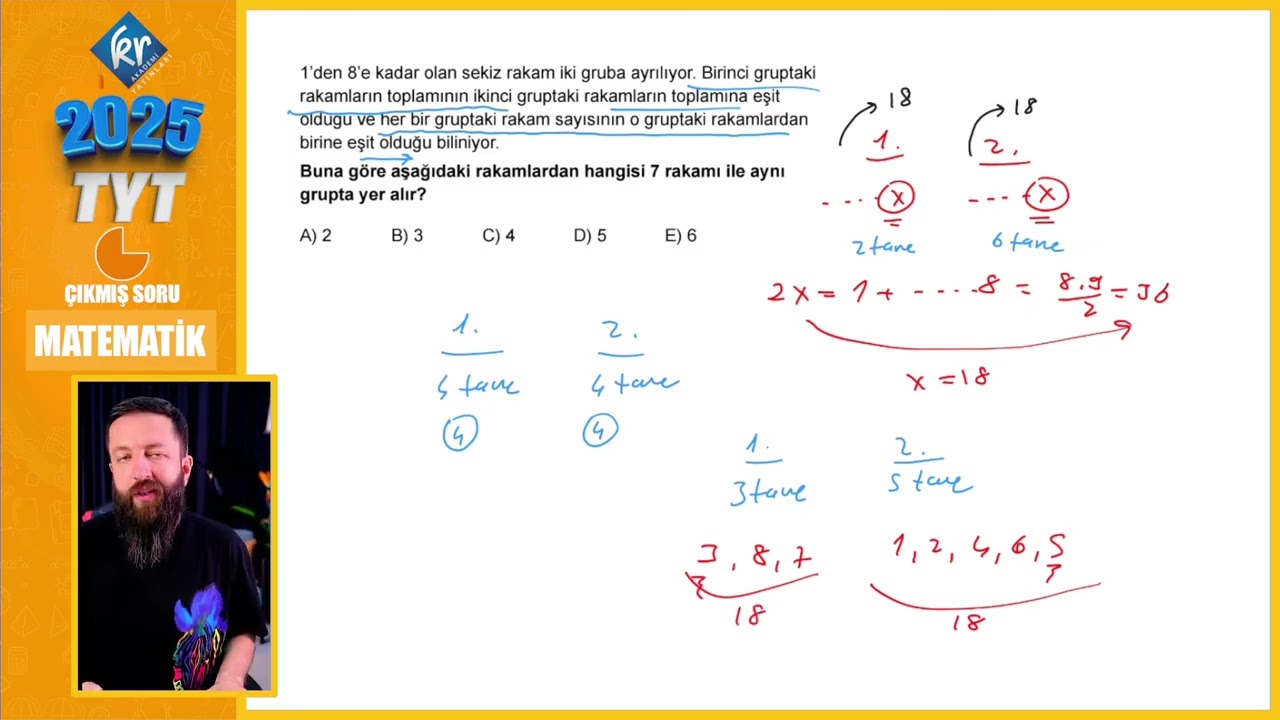 kr
AKADEMİ
YAYINLARI
2025
TYT
ÇIKMIŞ SORU
MATEMATİK
1'den 8'e kadar olan sekiz rakam iki gruba ayrılıyor. Birinci gruptaki
rakamların toplamının ikinci gruptaki rakamların toplamına eşit
olduğu ve her bir gruptaki rakam sayısının o gruptaki rakamlardan
birine eşit olduğu biliniyor.
Buna göre aşağıdaki rakamlardan hangisi 7 rakamı ile aynı
grupta yer alır?
A) 2 B) 3 C) 4 D) 5 E) 6
18 18
1. 2.
---- x ---- x
2 tane 6 tane
2x = 1 + ----- 8 = 8.9/2 = 36
x = 18
1. 2.
4 tane 4 tane
4 4
1. 2.
3 tane 5 tane
3, 8, 7 1, 2, 4, 6, 5
18 18